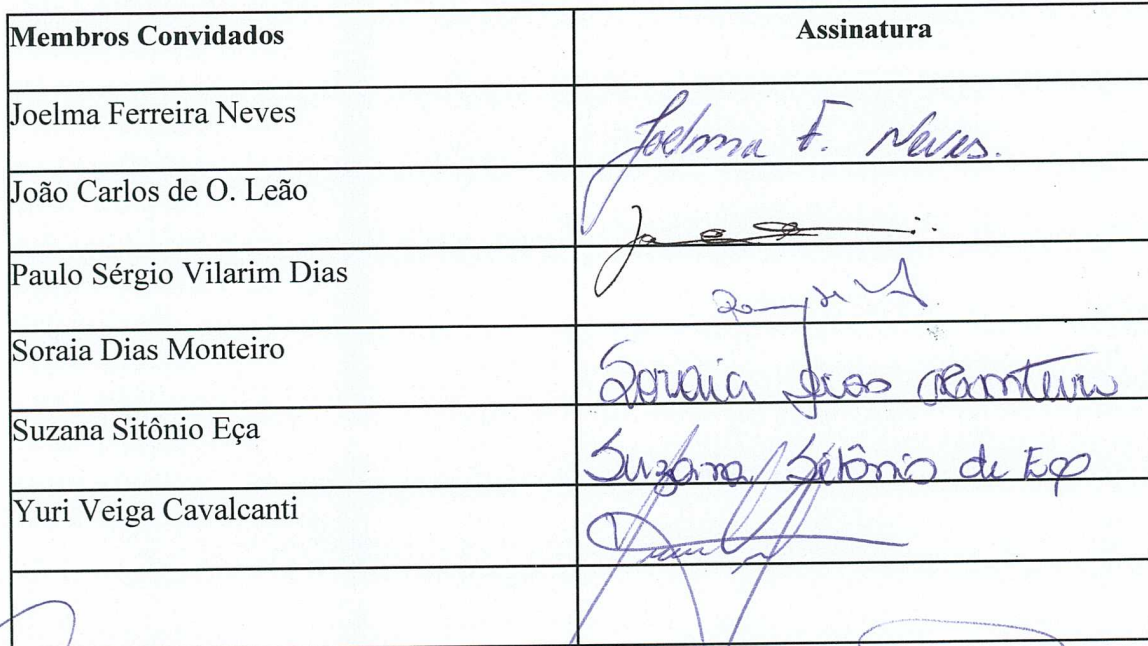 Membros Convidados Assinatura
Joelma Ferreira Neves Joelma F. Neves.
João Carlos de O. Leão
Paulo Sérgio Vilarim Dias
Soraia Dias Monteiro Soraia Dias Monteiro
Suzana Sitônio Eça Suzana Sitônio de Eça
Yuri Veiga Cavalcanti